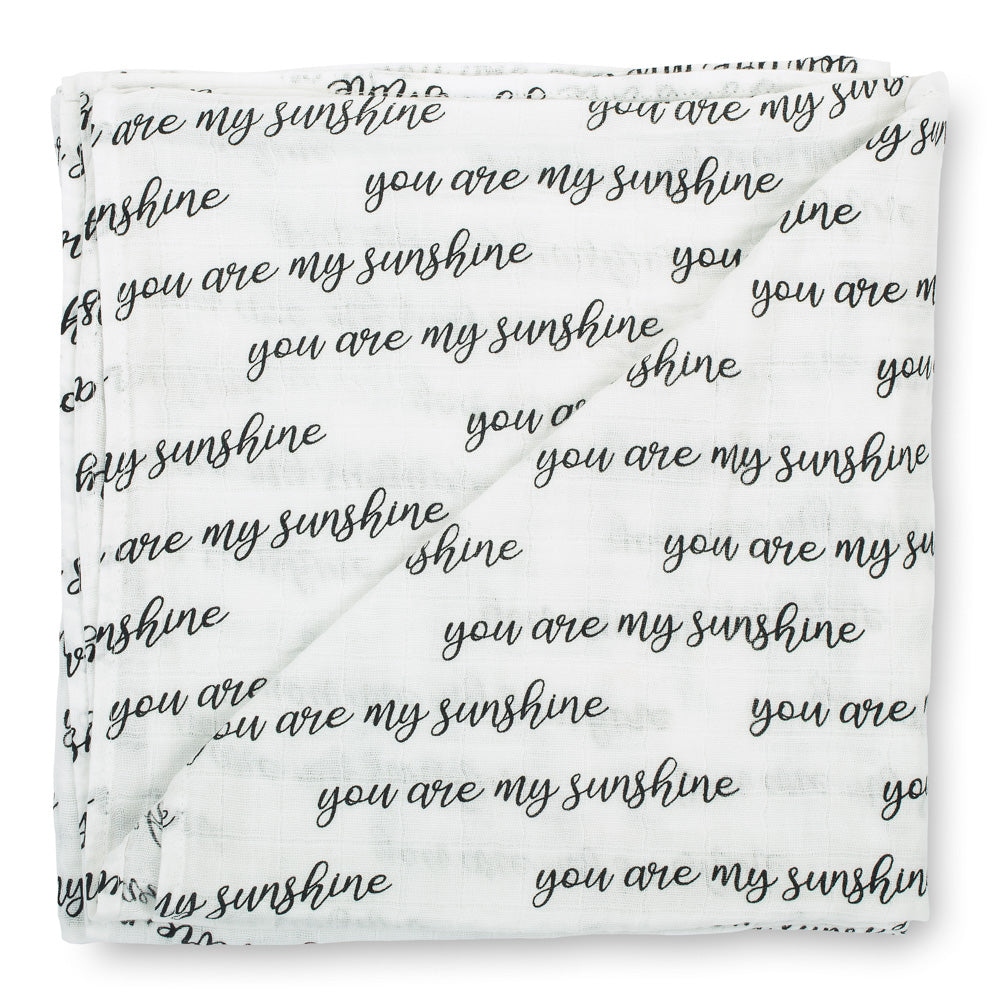 are my sunshine you are my
you are my sunshine
nshine
ine
you are my sunshine you
you are m
you are my sunshine
shine you
you a
my sunshine
you are my sunshine
are my sunshine
shine you are my su
nshine
you are my sunshine
you are
ou are my sunshine you are
you are my sunshine yo
my sunshine you are my sunshin